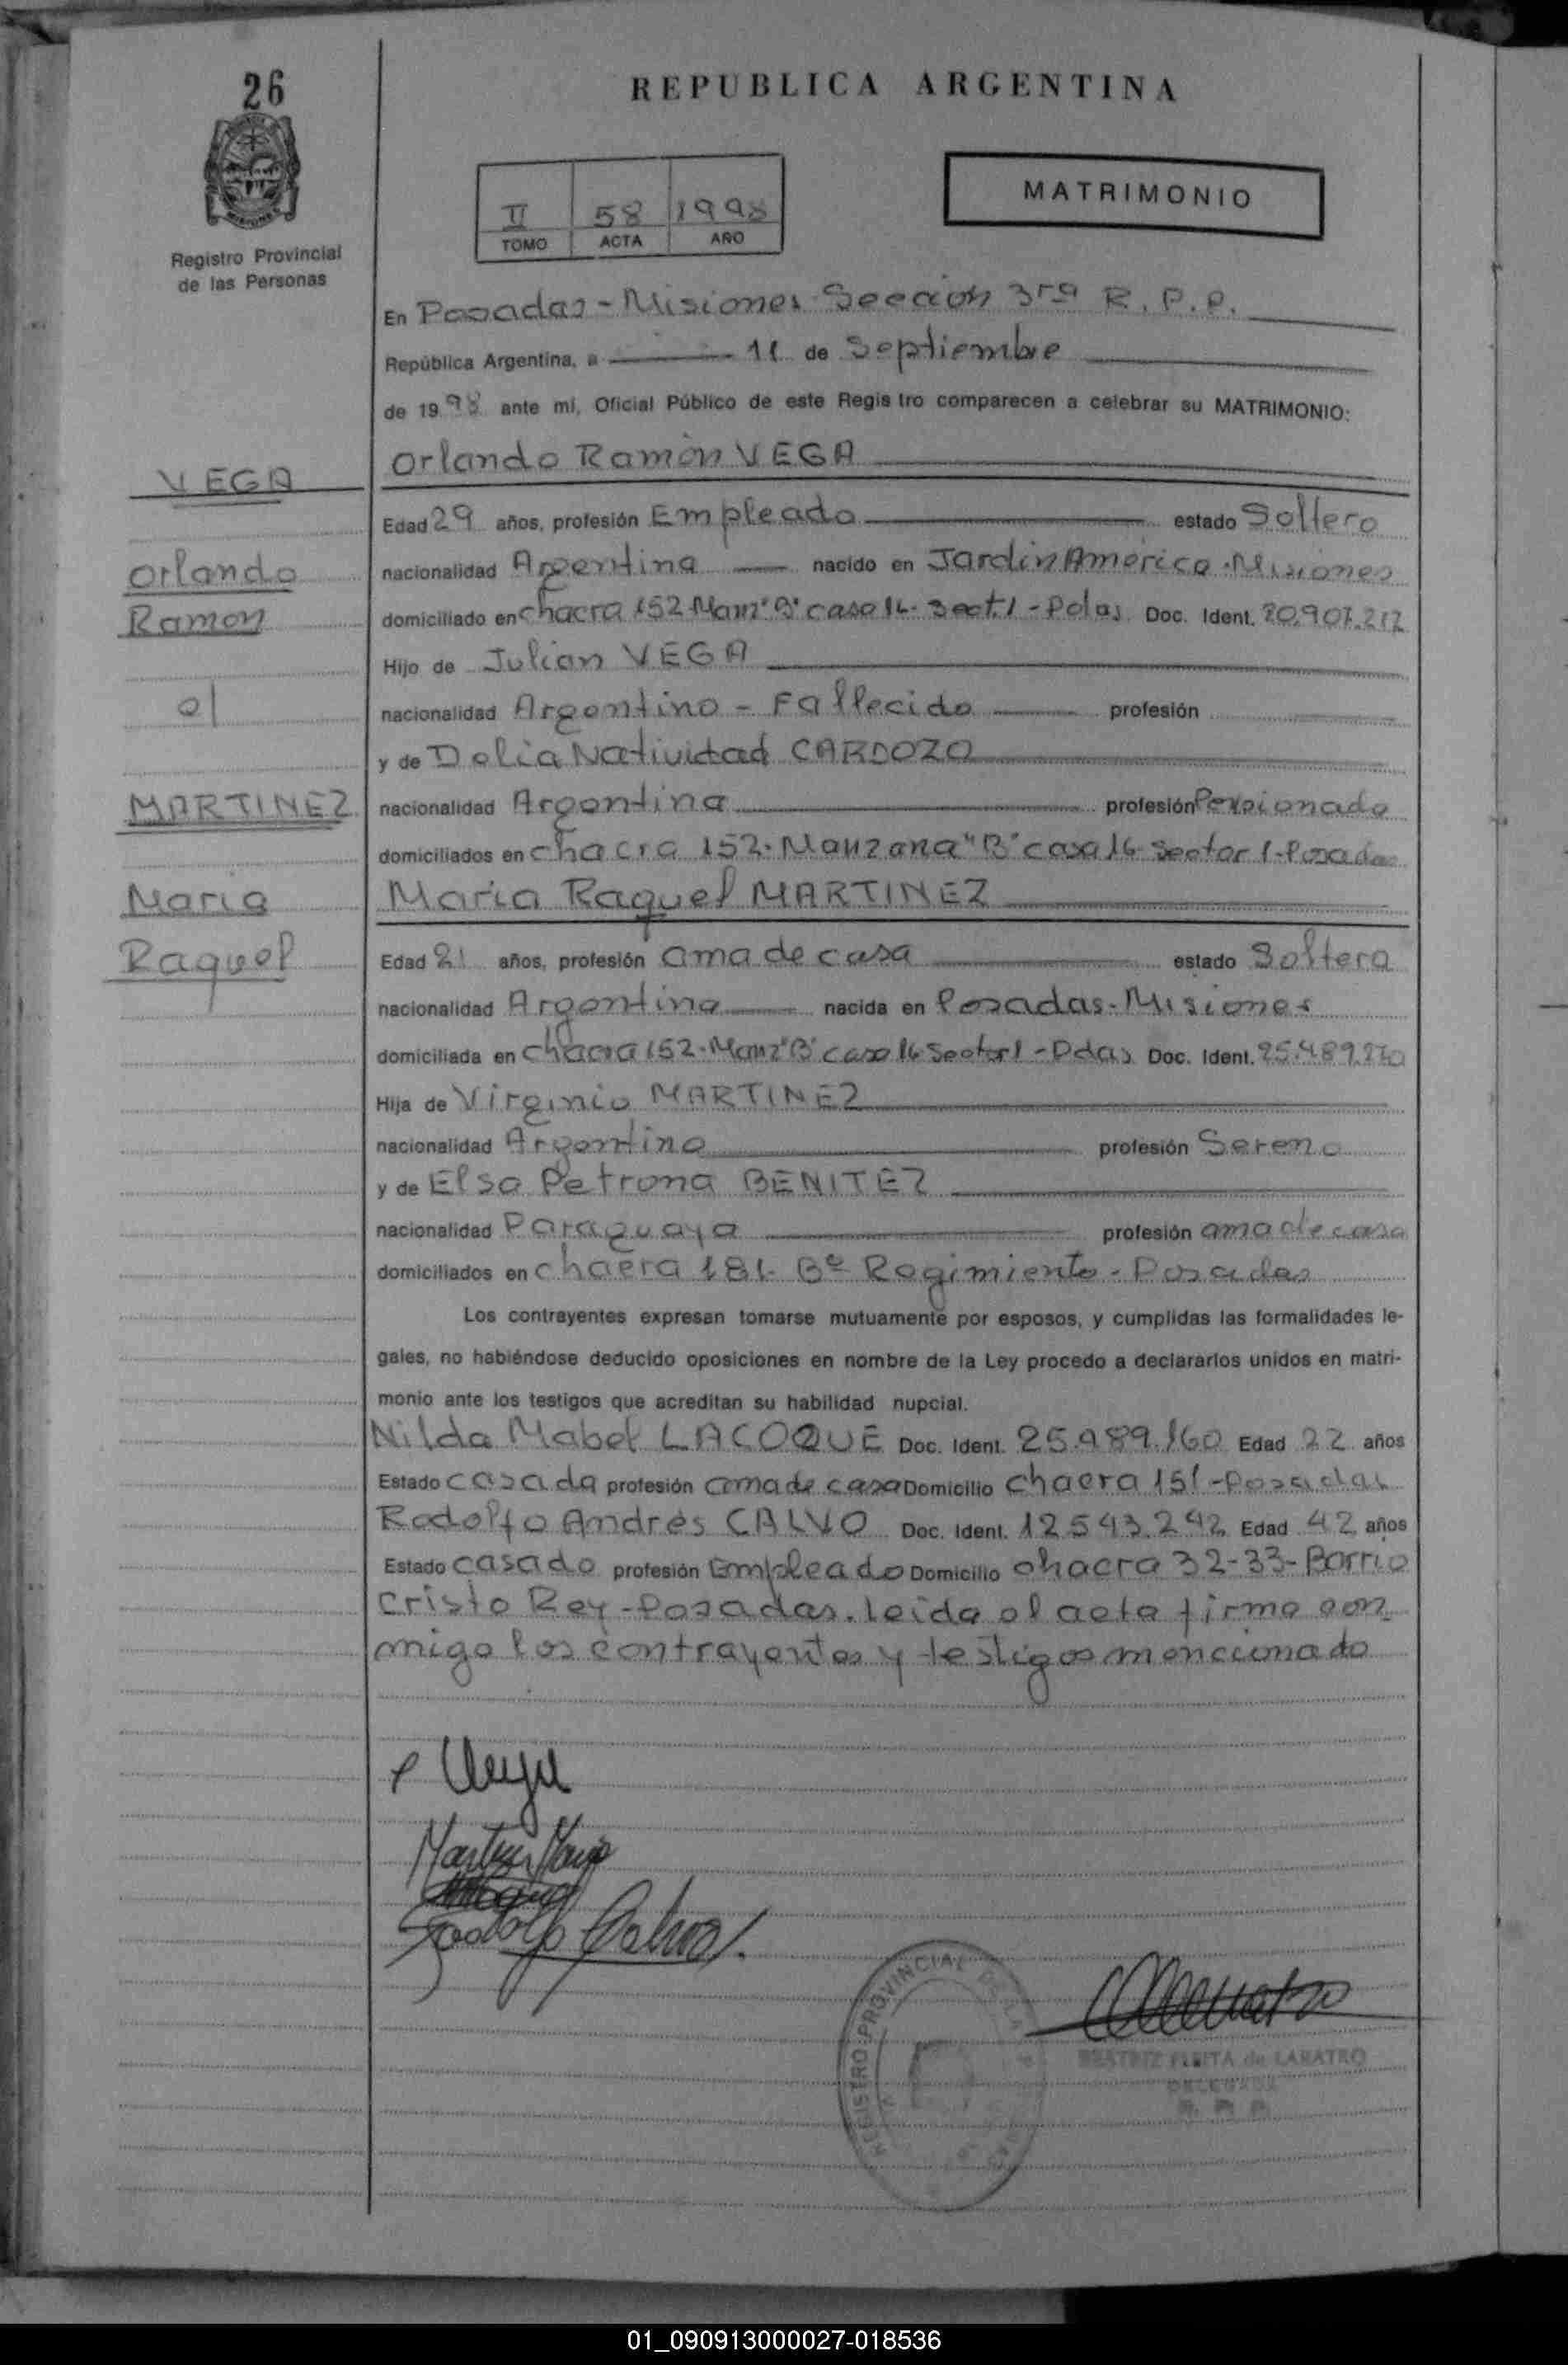 26
REPUBLICA ARGENTINA
MISIONES
Registro Provincial
de las Personas
II 58 1998
TOMO ACTA AÑO
MATRIMONIO
En Posadas - Misiones Sección 3ra R. P. P.
República Argentina, a 11 de Septiembre
de 1998 ante mí, Oficial Público de este Registro comparecen a celebrar su MATRIMONIO:
Orlando Ramón VEGA
VEGA
Edad 29 años, profesión Empleado estado Soltero
Orlando
nacionalidad Argentina nacido en Jardín América - Misiones
Ramon
domiciliado en chacra 152 Manz "B" casa 16 - Sect. 1 - Pdas Doc. Ident. 20.907.212
Hijo de Julian VEGA
c/
nacionalidad Argentino - Fallecido profesión
y de Delia Natividad CARDOZO
MARTINEZ
nacionalidad Argentina profesión Pensionada
domiciliados en chacra 152 - Manzana "B" casa 16 Sector 1 - Posadas
Maria
Maria Raquel MARTINEZ
Raquel
Edad 21 años, profesión ama de casa estado Soltera
nacionalidad Argentina nacida en Posadas - Misiones
domiciliada en chacra 152 - Manz "B" casa 16 Sector 1 - Pdas Doc. Ident.
Hija de Virginio MARTINEZ
nacionalidad Argentino profesión Sereno
y de Elsa Petrona BENITEZ
nacionalidad Paraguaya profesión ama de casa
domiciliados en chacra 181 - Bº Regimiento - Posadas
Los contrayentes expresan tomarse mutuamente por esposos, y cumplidas las formalidades le-
gales, no habiéndose deducido oposiciones en nombre de la Ley procedo a declararlos unidos en matri-
monio ante los testigos que acreditan su habilidad nupcial.
Nilda Mabel LACOQUE Doc. Ident. 25.989.160 Edad 22 años
Estado casada profesión ama de casa Domicilio chacra 151 - Posadas
Rodolfo Andrés CALVO Doc. Ident. 12543.242 Edad 42 años
Estado casado profesión Empleado Domicilio chacra 32-33 - Barrio
Cristo Rey - Posadas. Leída el acta firma con-
migo los contrayentes y testigos mencionado
Rodolfo Calvo
REGISTRO PROVINCIAL DE LAS
BEATRIZ FLEITA de LABATRO
DELEGADA
R. P. P.
01_090913000027-018536